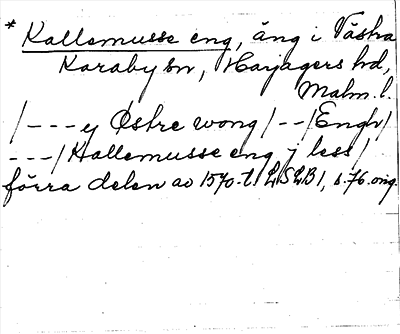 * Kallemusse eng, äng i Västra
Karaby sn, Harjagers hd,
Malm. l.
/---y Østre wong/--/Engh/
---/Kallemusse eng j less/
förra delen av 1570-t. LSLB 1, s. 76. orig.